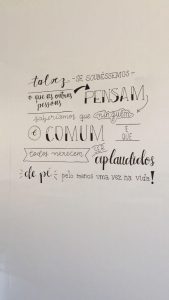 talvez - SE SOUBÉSSEMOS -
o que as outras pessoas PENSAM
saberíamos que ninguém
é COMUM E QUE
todos merecem SER aplaudidos
de pé pelo menos uma vez na vida!